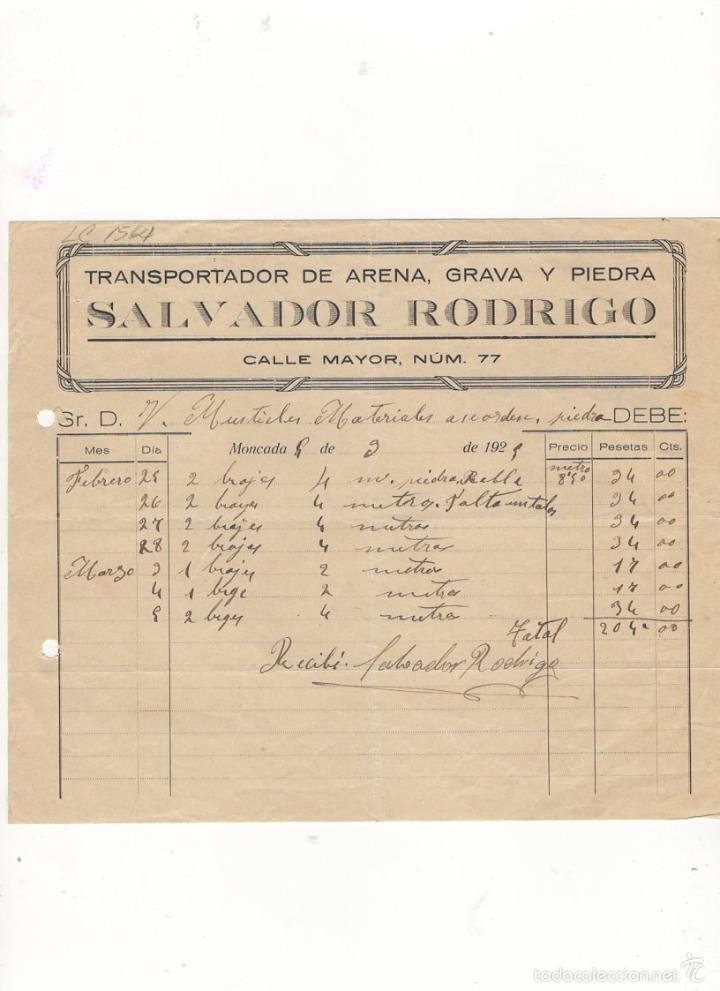 LC 1564
TRANSPORTADOR DE ARENA, GRAVA Y PIEDRA
SALVADOR RODRIGO
CALLE MAYOR, NÚM. 77
Sr. D. V. Mustieles Materiales piedra DEBE:
Mes Día Moncada 5 de 3 de 1925 Precio Pesetas Cts.
Febrero 25 2 biajes 4 m. piedra metro 8'50 34 00
26 2 biajes 4 metros 34 00
27 2 biajes 4 metros 34 00
28 2 biajes 4 metros 34 00
Marzo 3 1 biaje 2 metros 17 00
4 1 2 metros 17 00
5 2 4 metros 34 00
Total 204 00
Recibí. Salvador Rodrigo
todocoleccion.net